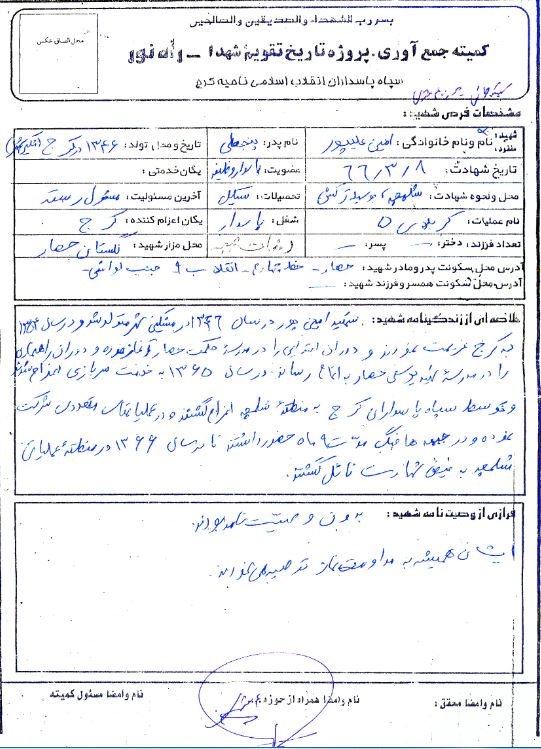 بسم رب الشهداء والصدیقین والصالحین
محل الصاق عکس
کمیته جمع آوری، پروژه تاریخ تقویم شهدا - راه نور
سپاه پاسداران انقلاب اسلامی ناحیه کرج
مشخصات فردی شهید:
شهید: نام و نام خانوادگی: امین علیپور نام پدر: تاریخ و محل تولد: ۱۳۴۶
تاریخ شهادت: ۶۶/۳/۸ عضویت: پاسدار وظیفه یگان خدمتی:
محل ونحوه شهادت: شلمچه تحصیلات: سیکل آخرین مسئولیت: مسئول دسته
نام عملیات: کربلای ۵ شغل: پاسدار یگان اعزام کننده: کرج
تعداد فرزند: دختر: — پسر: — محل مزار شهید: گلستان حصار
آدرس محل سکونت پدر و مادر شهید: حصار - خط چهارم - انقلاب
آدرس محل سکونت همسر و فرزند شهید: —
خلاصه ای از زندگینامه شهید: شهید امین پور در سال ۱۳۴۶ در مشکین شهر متولد شد و در سال
به کرج عزیمت نمودند و دوران ابتدایی را در مدرسه حکمت حصار آغاز نموده و دوران راهنمایی
را در مدرسه شهید یوسفی حصار به اتمام رساند. در سال ۱۳۶۵ به خدمت سربازی اعزام
و توسط سپاه پاسداران کرج به منطقه شلمچه اعزام گشتند و در عملیاتهای متعددی شرکت
نموده و در جبهه ها جنگ مدت ۹ ماه حضور داشتند تا در سال ۱۳۶۶ در منطقه عملیاتی
شلمچه به فیض شهادت نائل گشتند.
فرازی از وصیت نامه شهید: بدون وصیت نامه بودند.
ایشان همیشه به مداومت نماز توصیه می نمودند.
نام وامضا محقق: نام وامضا همراه از حوزه نام وامضا مسئول کمیته